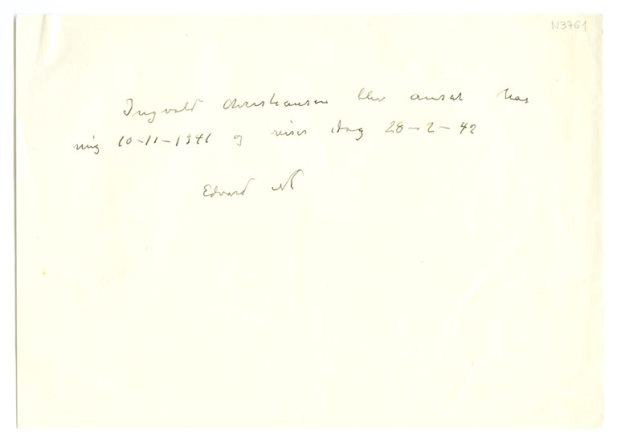 N3761
Ingvald Christiansen blev ansat hos
mig 10-11-1941 og reiser idag 28-2-42
Edvard M